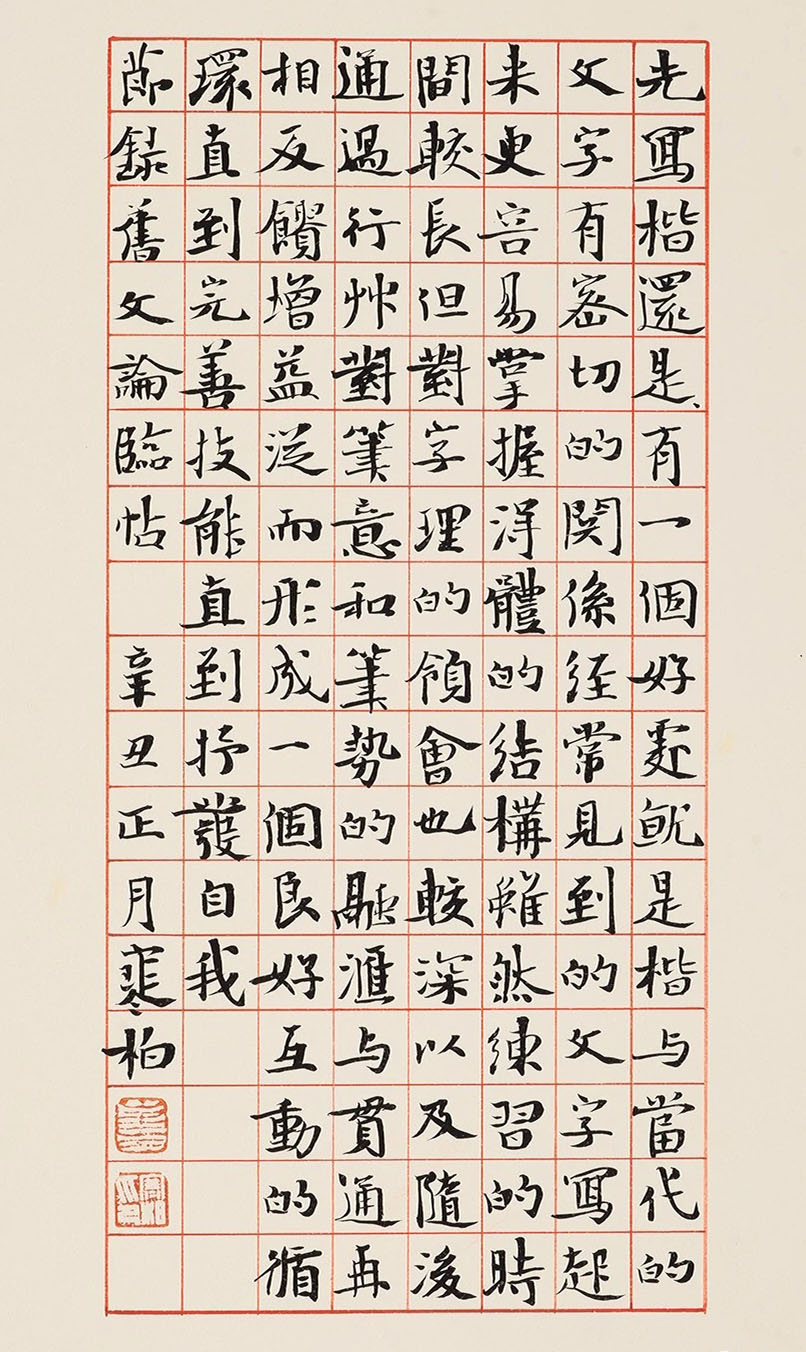 先寫楷還是有一個好處就是楷与當代的
文字有密切的関係经常見到的文字寫起
来更容易掌握得體的结構雖然练習的時
間較長但對字理的領會也較深以及隨後
通過行艸對筆意和筆势的融滙与貫通再
相反饋增益従而形成一個良好互動的循
環直到完善技能直到抒發自我
節録舊文論臨帖 辛丑正月寒柏